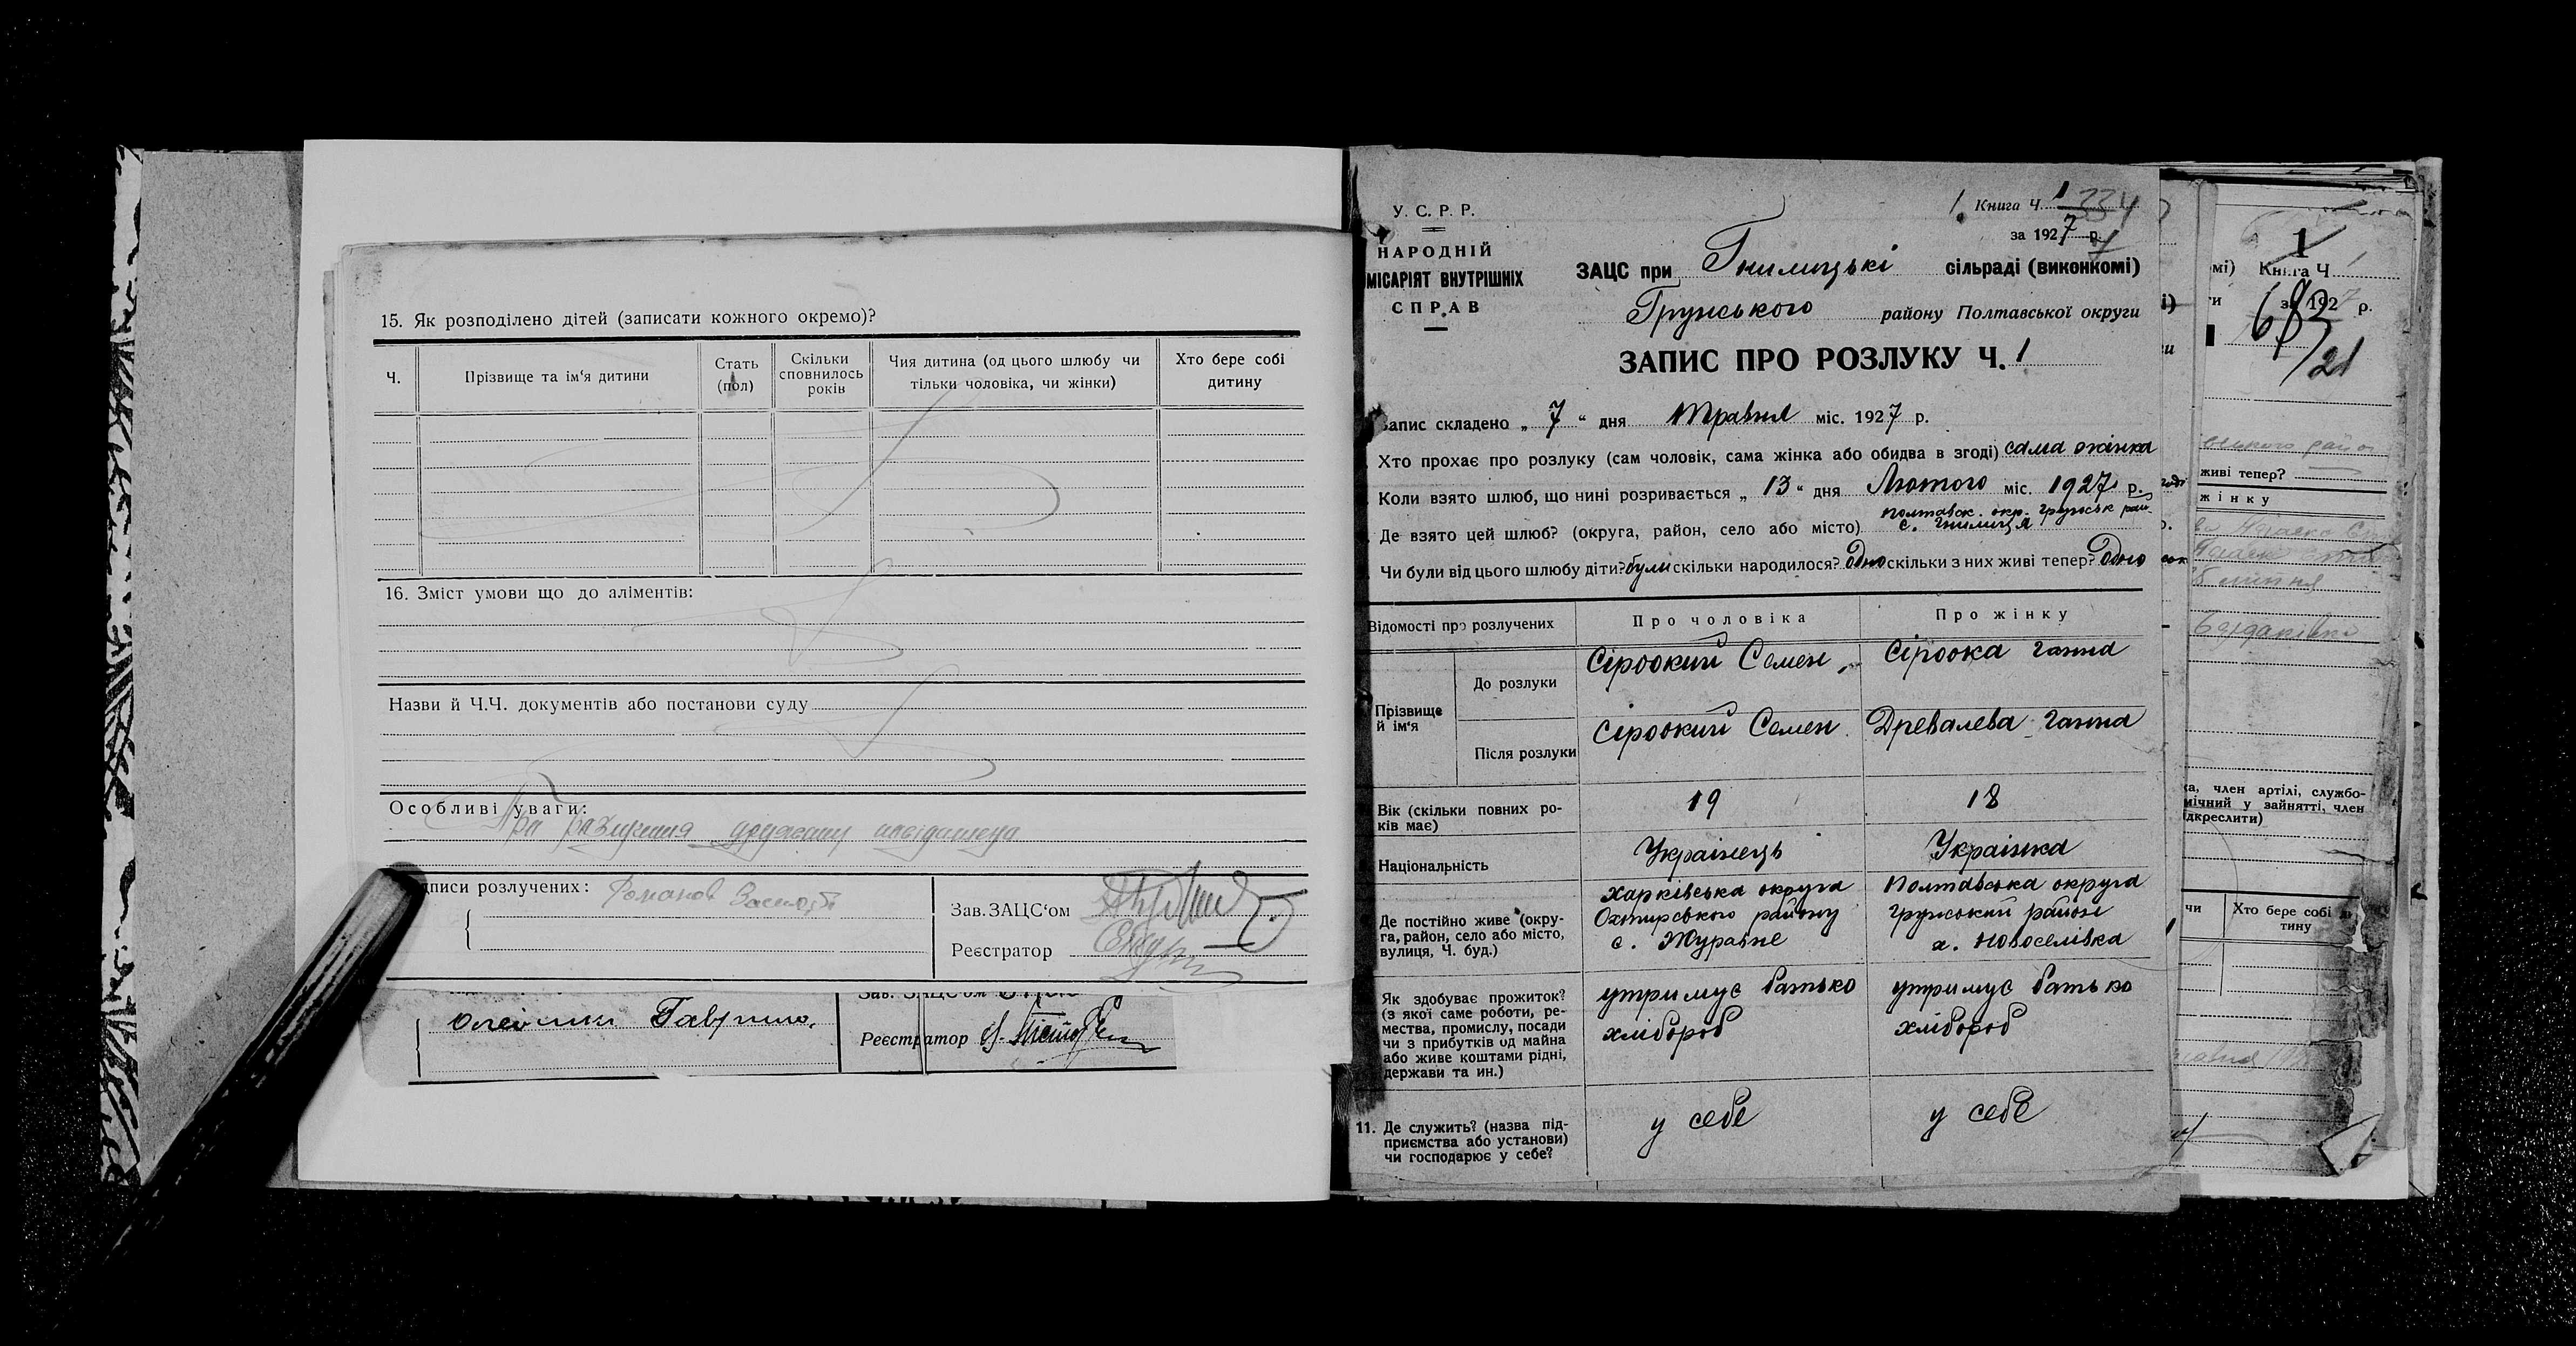 15. Як розподілено дітей (записати кожного окремо)?
Ч. Прізвище та ім‘я дитини Стать (пол) Скільки сповнилось років Чия дитина (од цього шлюбу чи тільки чоловіка, чи жінки) Хто бере собі дитину
16. Зміст умови що до аліментів:
Назви й Ч.Ч. документів або постанови суду
Особливі уваги:
Про
дписи розлучених: Романов
Зав. ЗАЦС‘ом
Реєстратор
Зав. ЗАЦС‘ом
Гаврило
Реєстратор
У. С. Р. Р.
НАРОДНІЙ
МІСАРІЯТ ВНУТРІШНІХ
СПРАВ
1. Книга Ч. 1 334
за 1927 р.
ЗАЦС при Гнилицькі сільраді (виконкомі)
Грунського району Полтавської округи
ЗАПИС ПРО РОЗЛУКУ Ч. 1
Запис складено „ 7 “ дня Травня міс. 1927 р.
Хто прохає про розлуку (сам чоловік, сама жінка або обидва в згоді) сама жінка
Коли взято шлюб, що нині розривається „ 13 “ дня Лютого міс. 1927 р.
Полтавск. окр. Грунськ рай.
Де взято цей шлюб? (округа, район, село або місто) с. Гнилиця
Чи були від цього шлюбу діти? були скільки народилося? одно скільки з них живі тепер? Одно
Відомості про розлучених Про чоловіка Про жінку
Прізвище й ім‘я
До розлуки Сіроокий Семен Сіроока Ганна
Після розлуки Сіроокий Семен Древалева Ганна
Вік (скільки повних ро-
ків має) 19 18
Національність Українець Українка
Де постійно живе (окру-
га, район, село або місто,
вулиця, Ч. буд.)
Харківська округа
Охтирського району
с. Журавне
Полтавська округа
Грунський район
х. Новоселівка
Як здобуває прожиток?
(з якої саме роботи, ре-
мества, промислу, посади
чи з прибутків од майна
або живе коштами рідні,
держави та ин.)
утримує батько
хлібороб
утримує батько
хлібороб
11. Де служить? (назва під-
приємства або установи)
чи господарює у себе?
у себе у себе
1
мі) Книга Ч. 1
за 1927 р.
683/21
живі тепер?
жінку
ка, член артілі, службо-
мічний у зайнятті, член
ідкреслити)
чи Хто бере собі ди-
тину